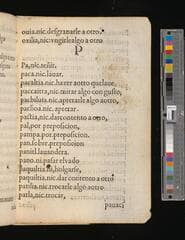 ouia,nic.desgranarle a otro.
oxilia,nic.vngirle algo a otro
P
Pa,nic.teñir.
paca.nic.lauar.
pacaltia,nic.hazer aotro que laue.
paccaitta,nic.mirar algo con gusto,
pachiluia,nic.apretarle algo aotro.
pachoa,nic.apretar.
pactia,nic.dar contento a otro,
pal,por preposicion,
pampa.por.preposicion.
pan.sobre preposicion
panitl.lauandera.
pano.ni.pasar el vado
paquiltia.nic.dar contento a otro
patilia.nic.trocarle algo aotro
patla,nic.trocar,